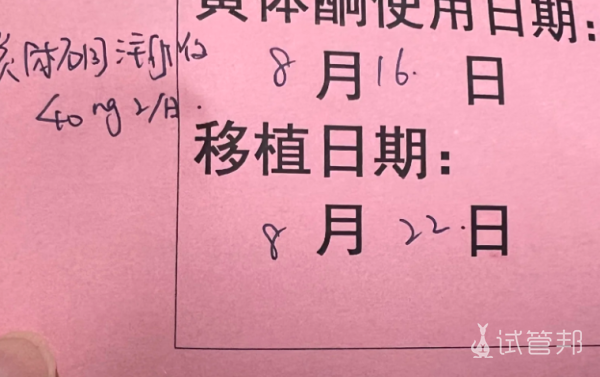 黄体酮使用日期：
黄体酮注射液
40mg 2/日.
8月16.日
移植日期：
8月22.日
试管邦